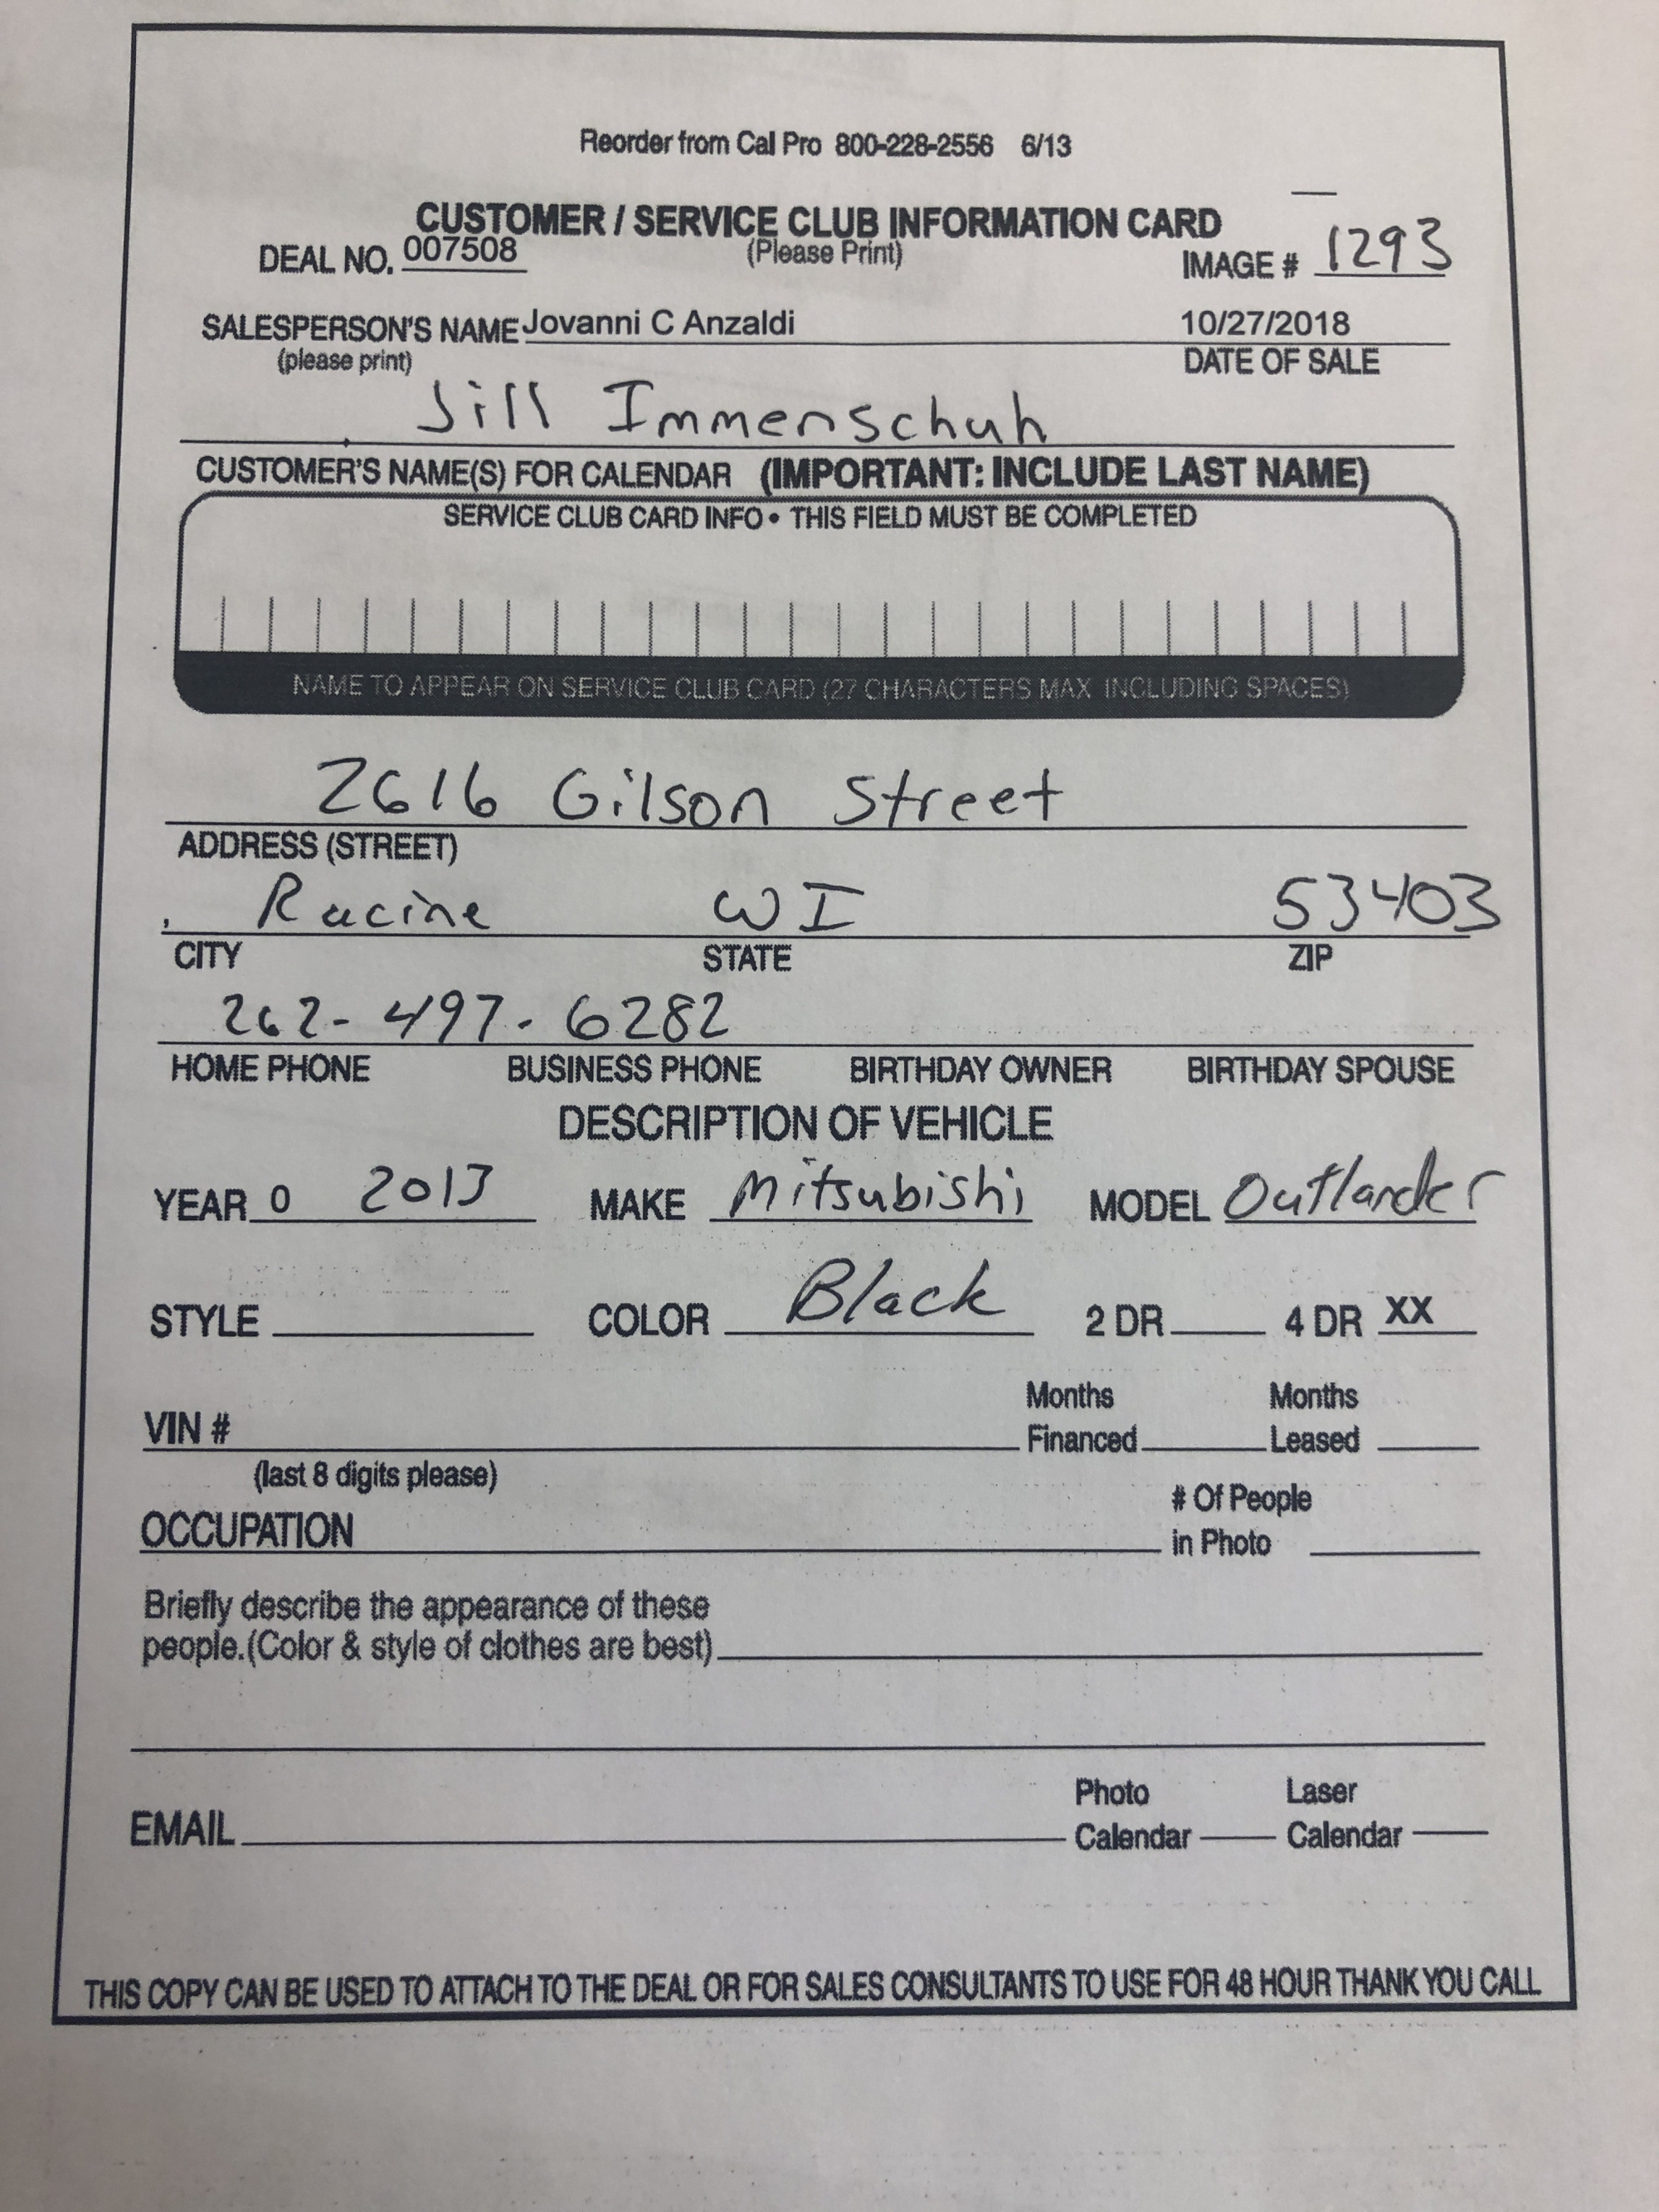 Reorder from Cal Pro 800-228-2556 6/13
CUSTOMER / SERVICE CLUB INFORMATION CARD
DEAL NO. 007508 (Please Print) IMAGE # 1293
SALESPERSON'S NAME Jovanni C Anzaldi 10/27/2018
(please print) DATE OF SALE
Jill Immenschuh
CUSTOMER'S NAME(S) FOR CALENDAR (IMPORTANT: INCLUDE LAST NAME)
SERVICE CLUB CARD INFO • THIS FIELD MUST BE COMPLETED
NAME TO APPEAR ON SERVICE CLUB CARD (27 CHARACTERS MAX INCLUDING SPACES)
2616 Gilson Street
ADDRESS (STREET)
Racine WI 53403
CITY STATE ZIP
262-497-6282
HOME PHONE BUSINESS PHONE BIRTHDAY OWNER BIRTHDAY SPOUSE
DESCRIPTION OF VEHICLE
YEAR 0 2013 MAKE Mitsubishi MODEL Outlander
STYLE COLOR Black 2 DR 4 DR XX
Months Months
VIN # Financed Leased
(last 8 digits please)
# Of People
OCCUPATION in Photo
Briefly describe the appearance of these
people.(Color & style of clothes are best)
Photo Laser
EMAIL Calendar Calendar
THIS COPY CAN BE USED TO ATTACH TO THE DEAL OR FOR SALES CONSULTANTS TO USE FOR 48 HOUR THANK YOU CALL